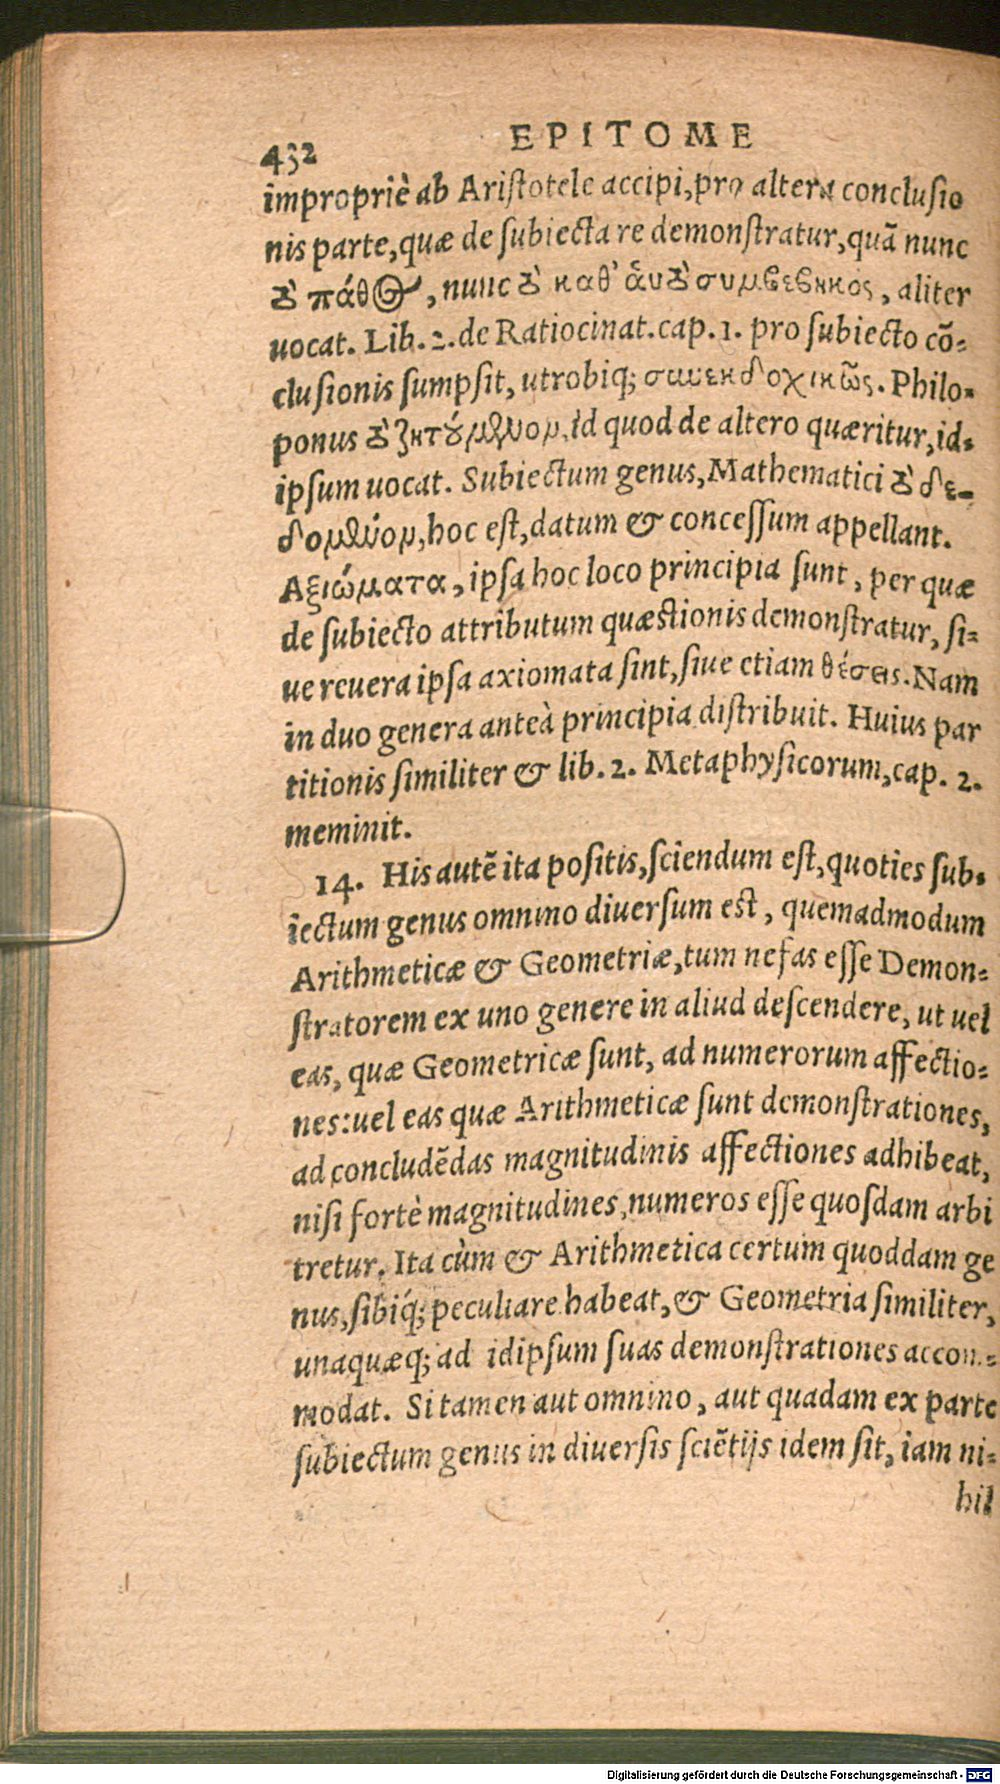 432 EPITOME
impropriè ab Aristotele accipi, pro altera conclusio
nis parte, quæ de subiecta re demonstratur, quã nunc
τὸ πάθος, nunc τὸ καθ' ἁυτὸ συμβεβηκὸς, aliter
uocat. Lib. 2. de Ratiocinat. cap. 1. pro subiecto cõ=
clusionis sumpsit, utrobiq; συνεκδοχικῶς. Philo=
ponus τὸ ζητούμενον, id quod de altero quæritur, id=
ipsum uocat. Subiectum genus, Mathematici τὸ δε-
δομένον, hoc est, datum & concessum appellant.
Αξιώματα, ipsa hoc loco principia sunt, per quæ
de subiecto attributum quæstionis demonstratur, si=
ue reuera ipsa axiomata sint, siue etiam θέσεις. Nam
in duo genera anteà principia distribuit. Huius par
titionis similiter & lib. 2. Metaphysicorum, cap. 2.
meminit.
14. His autẽ ita positis, sciendum est, quoties sub=
iectum genus omnino diuersum est, quemadmodum
Arithmeticæ & Geometriæ, tum nefas esse Demon=
stratorem ex uno genere in aliud descendere, ut uel
eas, quæ Geometricæ sunt, ad numerorum affectio=
nes: uel eas quæ Arithmeticæ sunt demonstrationes,
ad concludẽdas magnitudinis affectiones adhibeat,
nisi fortè magnitudines, numeros esse quosdam arbi
tretur. Ita cùm & Arithmetica certum quoddam ge
nus, sibiq́; peculiare habeat, & Geometria similiter,
unaquæq; ad idipsum suas demonstrationes accom=
modat. Si tamen aut omnino, aut quadam ex parte
subiectum genus in diuersis sciẽtijs idem sit, iam ni=
hil
Digitalisierung gefördert durch die Deutsche Forschungsgemeinschaft - DFG